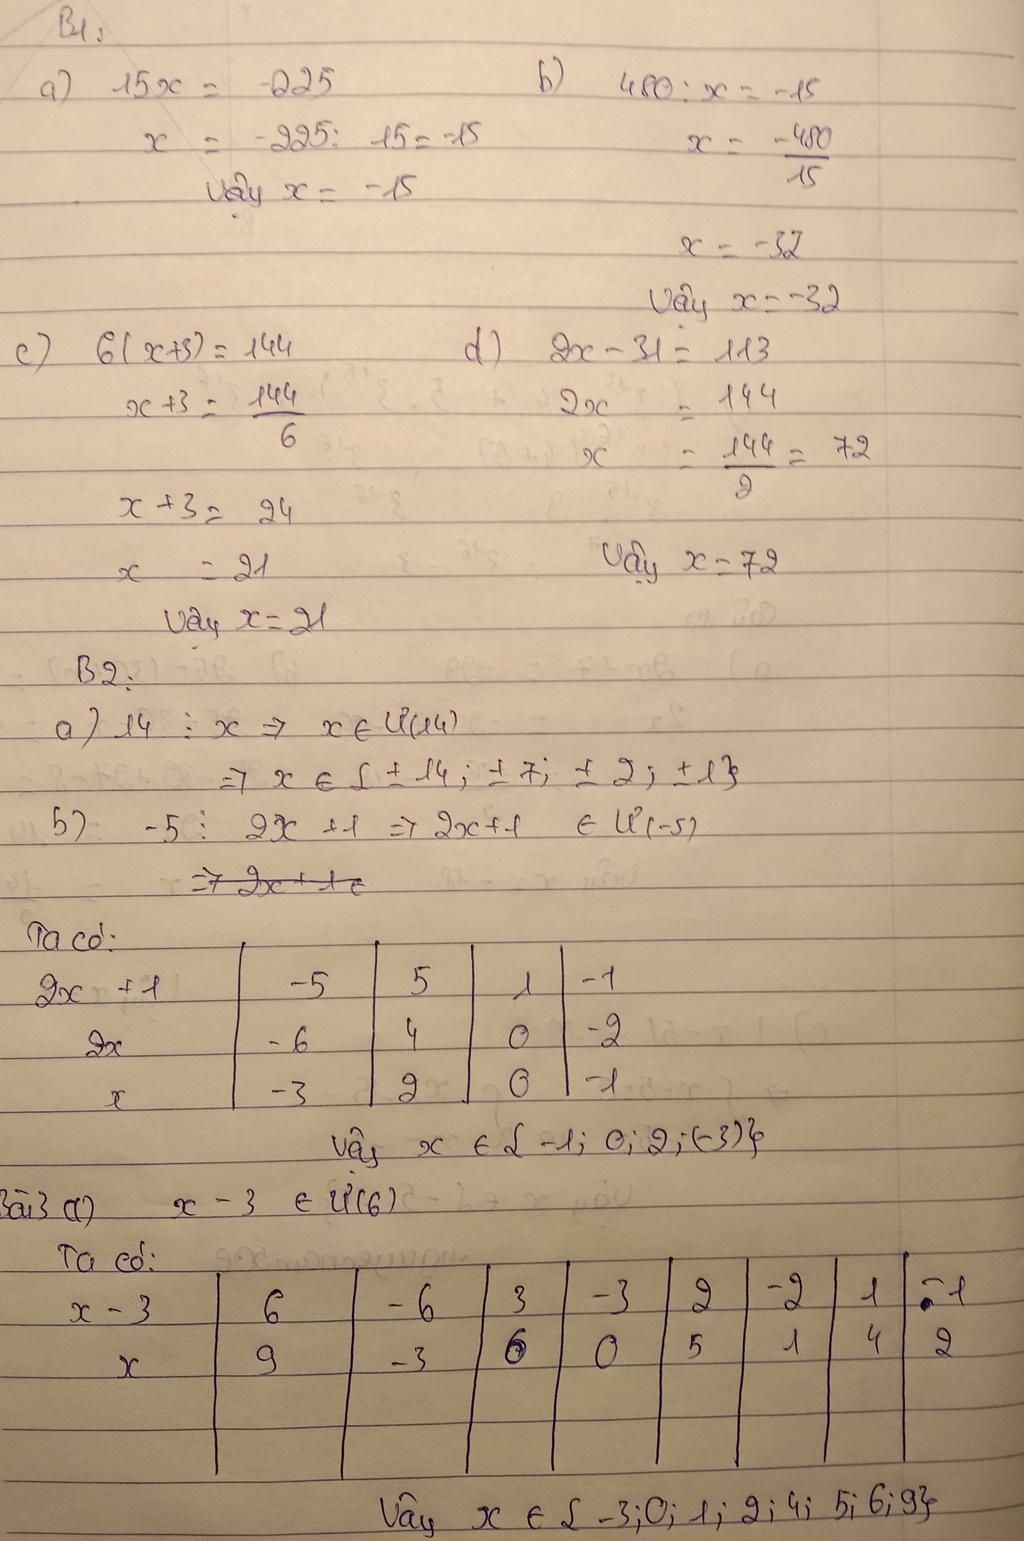 B1:
a) 15x = -225
x = -225: 15 = -15
Vậy x = -15
b) 480: x = -15
x = -480/15
x = -32
Vậy x = -32
c) 6(x+3) = 144
x+3 = 144/6
x+3 = 24
x = 21
Vậy x = 21
d) 2x - 31 = 113
2x = 144
x = 144/2 = 72
Vậy x = 72
B2:
a) 14 ⋮ x => x ∈ Ư(14)
=> x ∈ { ±14; ±7; ±2; ±1}
b) -5 ⋮ 2x +1 => 2x+1 ∈ Ư(-5)
=> 2x + 1 ∈
Ta có:
2x +1 | -5 | 5 | 1 | -1
2x | -6 | 4 | 0 | -2
x | -3 | 2 | 0 | -1
Vậy x ∈ { -1; 0; 2; (-3)}
Bài 3 a) x - 3 ∈ Ư(6)
Ta có:
x - 3 | 6 | -6 | 3 | -3 | 2 | -2 | 1 | -1
x | 9 | -3 | 6 | 0 | 5 | 1 | 4 | 2
Vậy x ∈ { -3; 0; 1; 2; 4; 5; 6; 9}